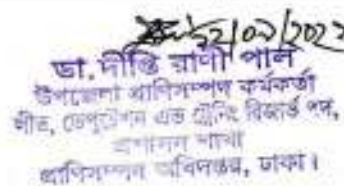 ১২/০১/২০২২
ডা. দীপ্তি রাণী পাল
উপজেলা প্রাণিসম্পদ কর্মকর্তা
লীভ, ডেপুটেশন এন্ড ট্রেনিং রিজার্ভ পদ,
প্রশাসন শাখা
প্রাণিসম্পদ অধিদপ্তর, ঢাকা।